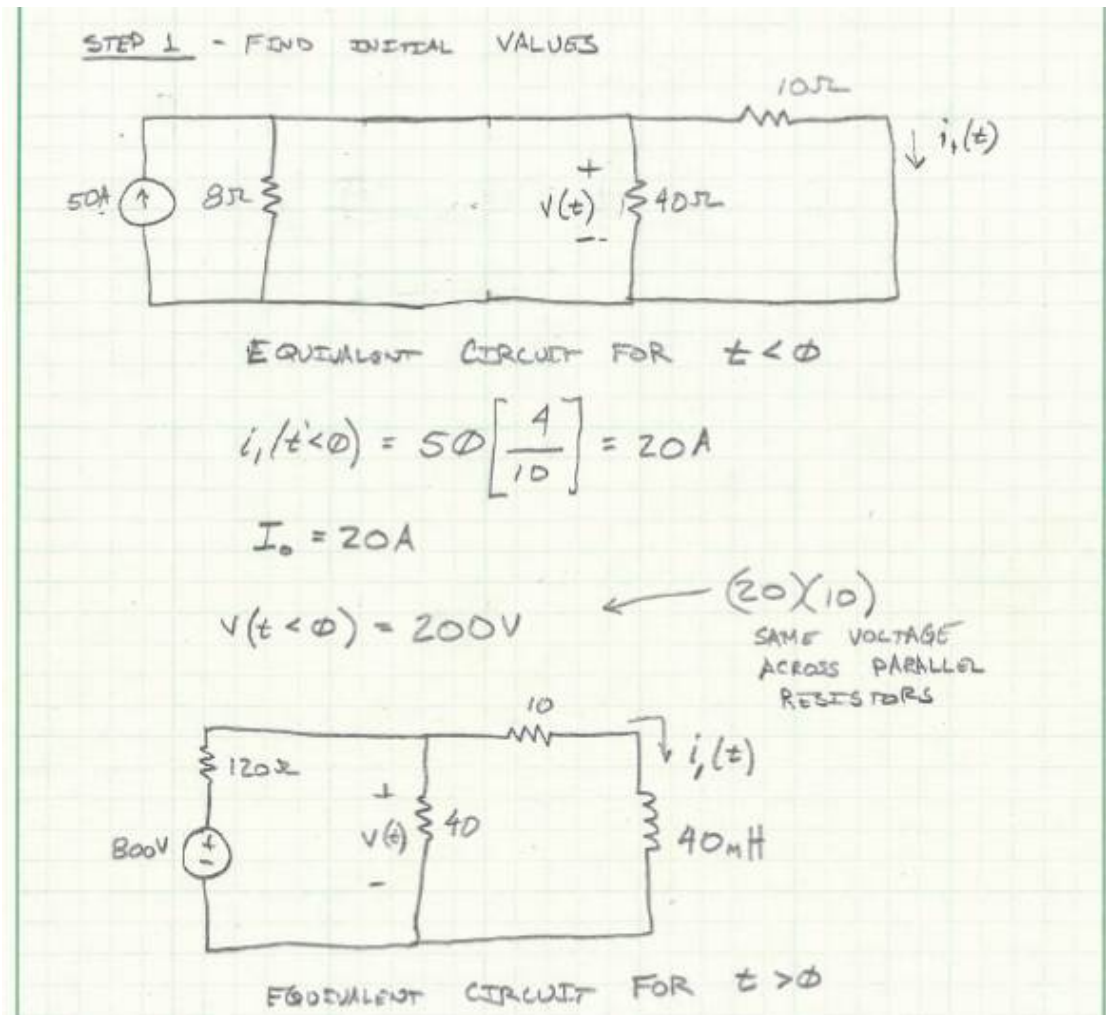 STEP 1 - FIND INITIAL VALUES
10Ω
i₁(t)
50A
8Ω
+
V(t)
-
40Ω
EQUIVALENT CIRCUIT FOR t < 0
i₁(t<0) = 50 [4/10] = 20A
I₀ = 20A
V(t < 0) = 200V
(20)(10)
SAME VOLTAGE
ACROSS PARALLEL
RESISTORS
10
i₁(t)
120Ω
+
V(t)
-
40
800V
+
-
40mH
EQUIVALENT CIRCUIT FOR t > 0